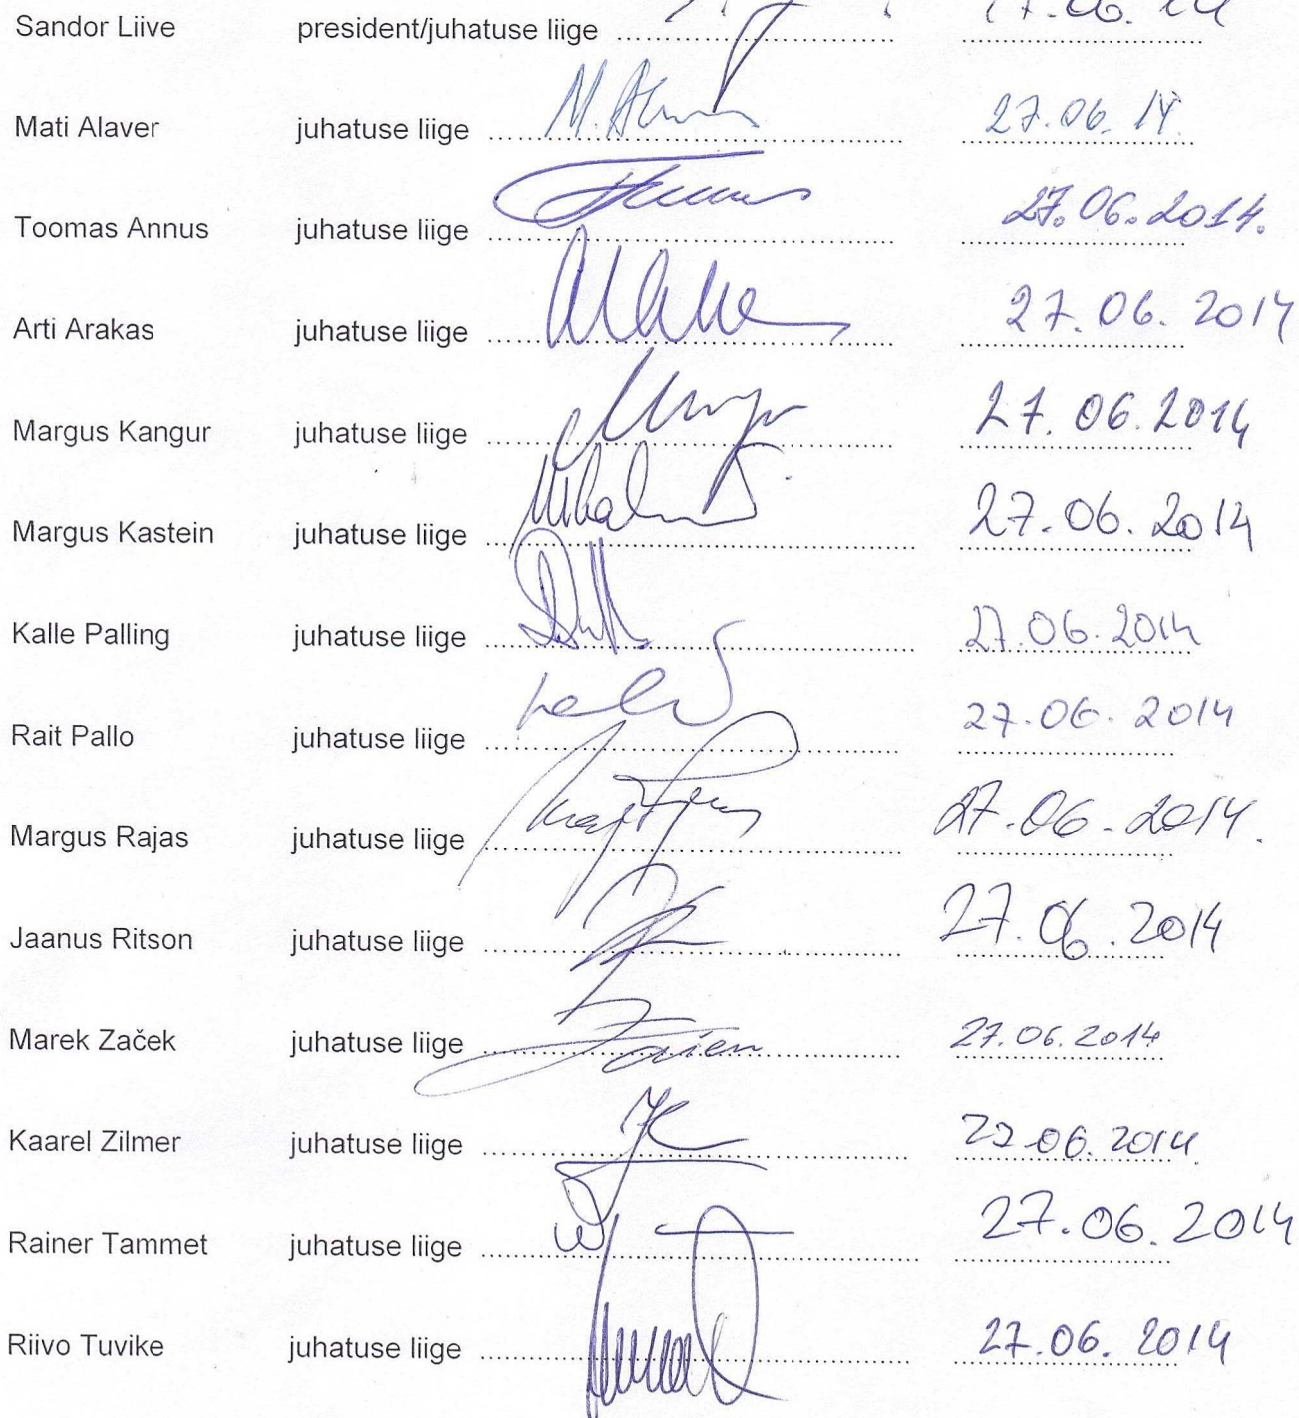 Sandor Liive president/juhatuse liige ........................................ .06.14
Mati Alaver juhatuse liige ........................................ 27.06.14.
Toomas Annus juhatuse liige ........................................ 27.06.2014.
Arti Arakas juhatuse liige ........................................ 27.06.2014
Margus Kangur juhatuse liige ........................................ 27.06.2014
Margus Kastein juhatuse liige ........................................ 27.06.2014
Kalle Palling juhatuse liige ........................................ 27.06.2014
Rait Pallo juhatuse liige ........................................ 27.06.2014
Margus Rajas juhatuse liige ........................................ 27.06.2014.
Jaanus Ritson juhatuse liige ........................................ 27.06.2014
Marek Začek juhatuse liige ........................................ 27.06.2014
Kaarel Zilmer juhatuse liige ........................................ 27.06.2014
Rainer Tammet juhatuse liige ........................................ 27.06.2014
Riivo Tuvike juhatuse liige ........................................ 27.06.2014